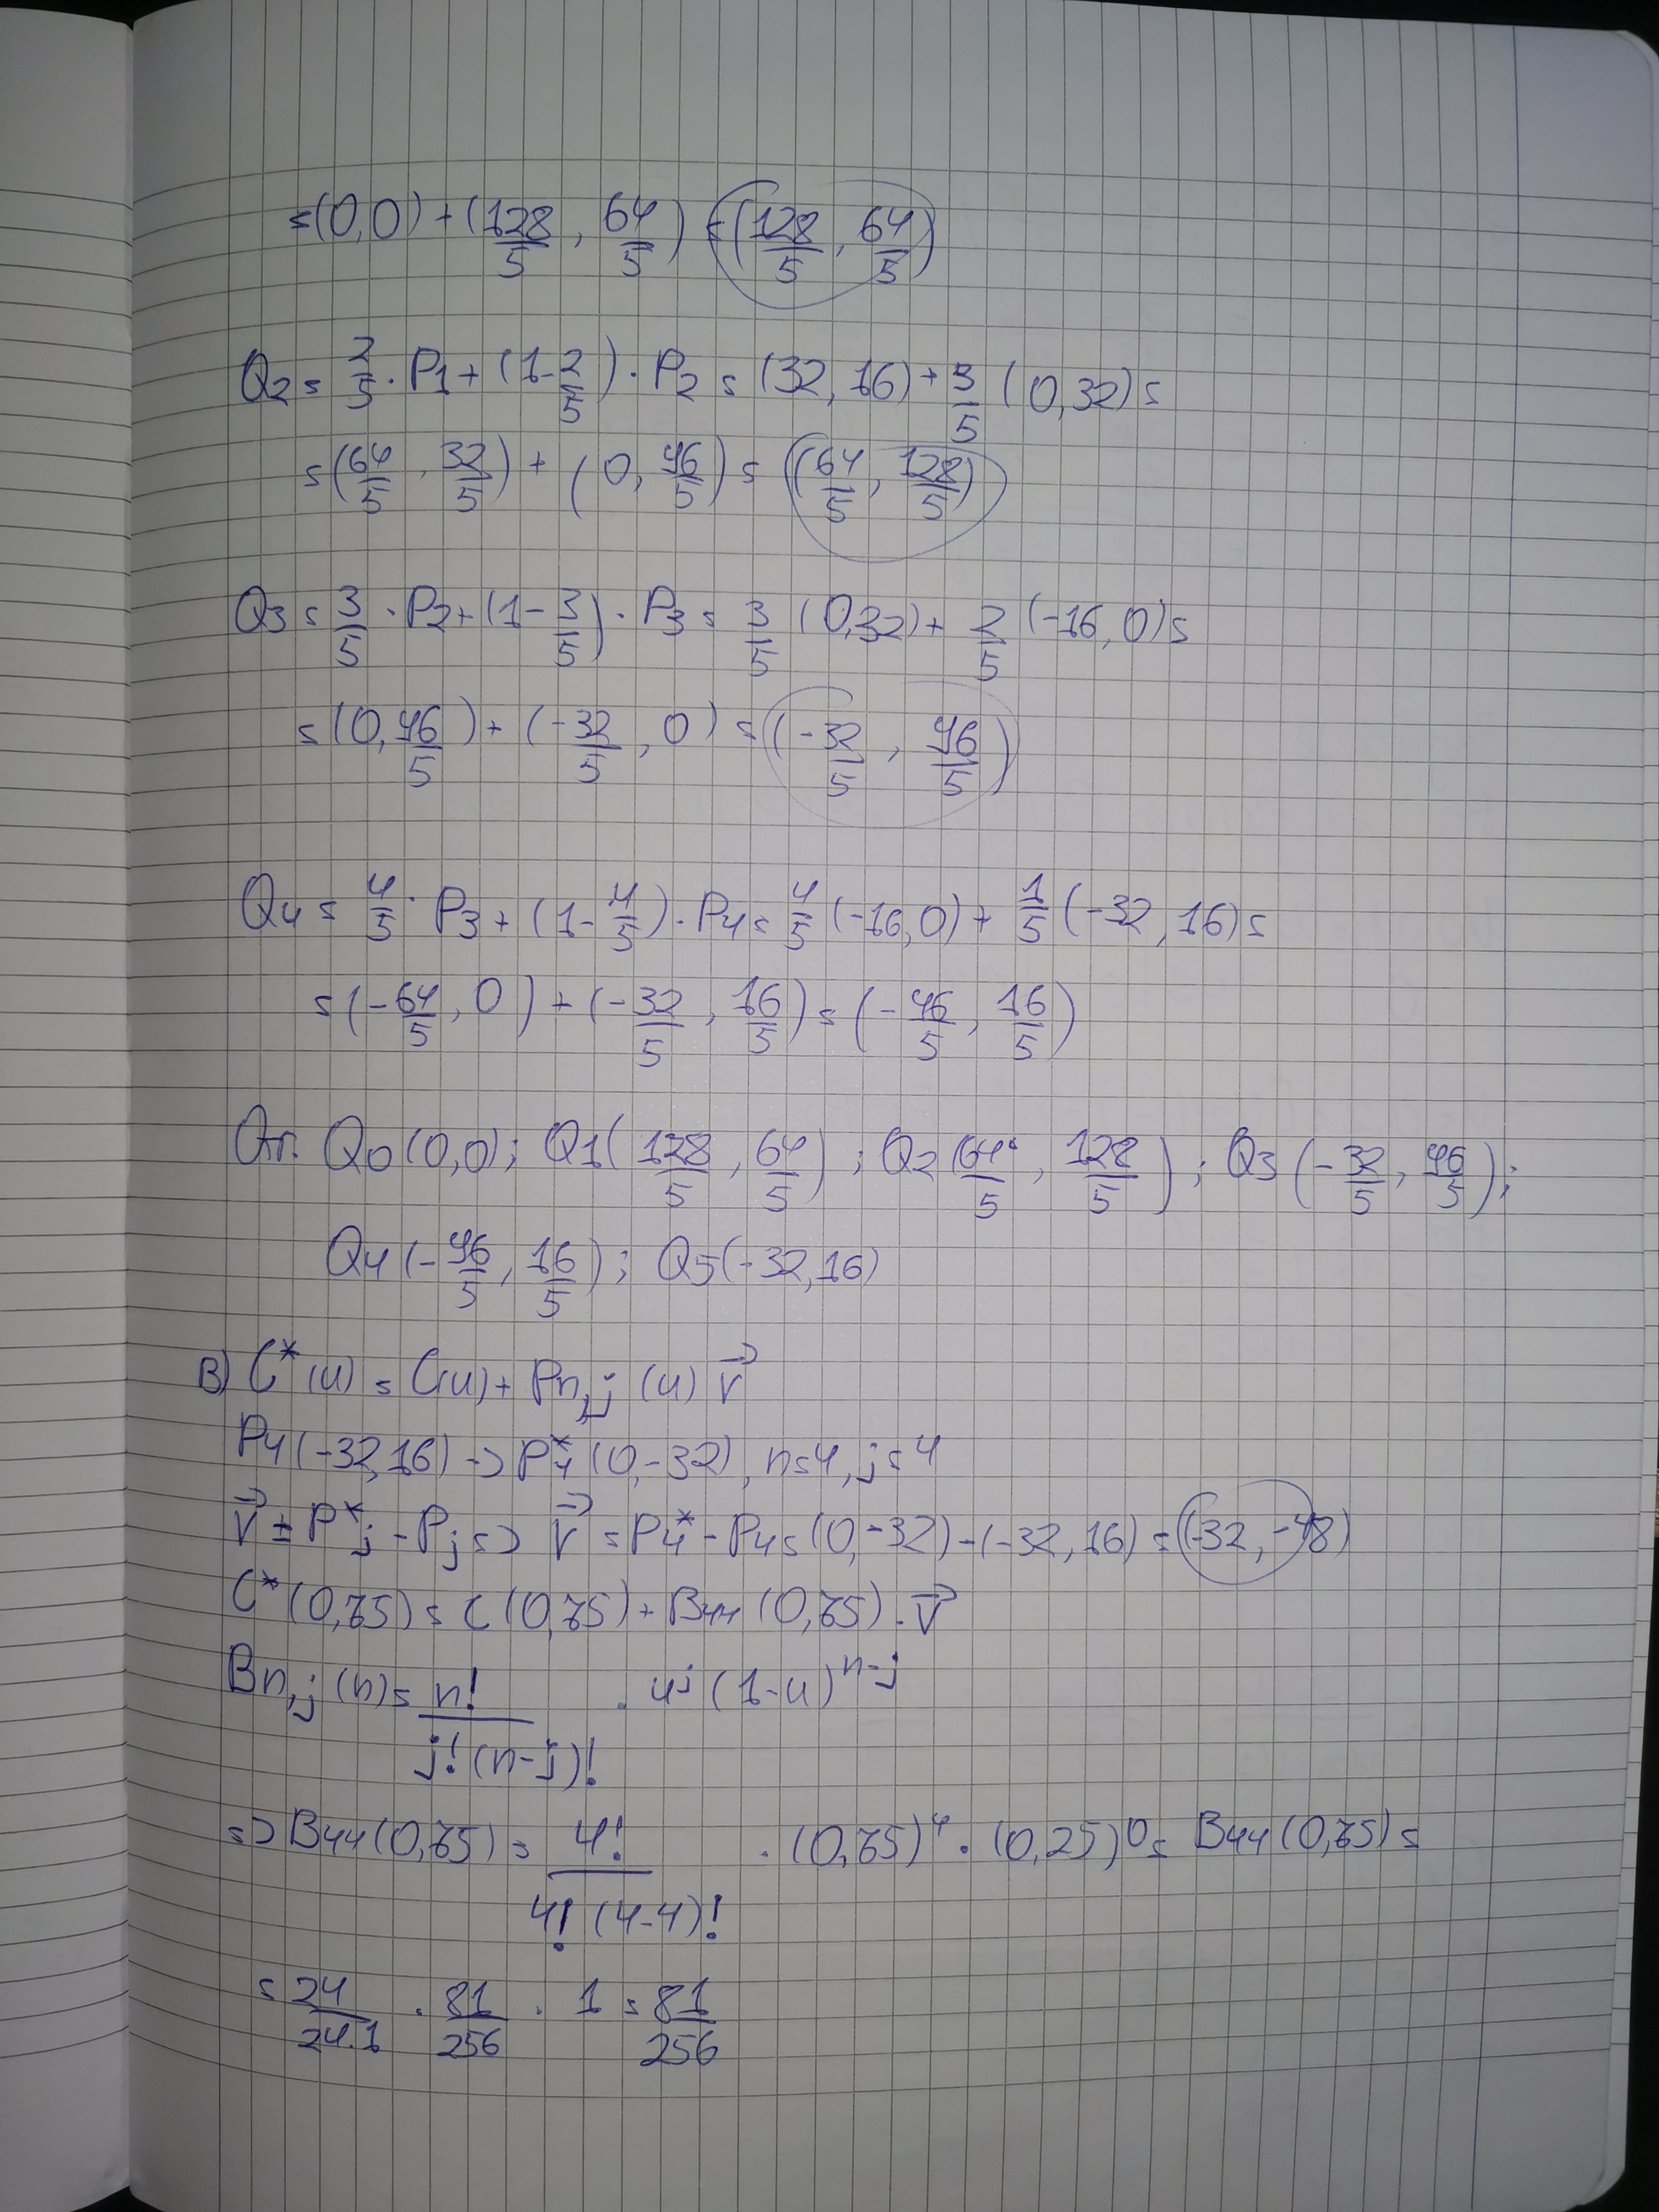 =(0,0)+(128/5, 64/5)=(128/5, 64/5)
Q2= 2/5 · P1+(1-2/5) · P2 = (32,16)+ 3/5 (0,32)=
=(64/5, 32/5)+(0, 96/5)=(64/5, 128/5)
Q3= 3/5 · P2+(1-3/5) · P3= 3/5 (0,32)+ 2/5 (-16,0)=
=(0, 96/5)+(-32/5, 0)=(-32/5, 96/5)
Q4= 4/5 · P3+(1-4/5) · P4= 4/5 (-16,0)+ 1/5 (-32,16)=
=(-64/5, 0)+(-32/5, 16/5)=(-96/5, 16/5)
От. Q0(0,0); Q1(128/5, 64/5); Q2(64/5, 128/5); Q3(-32/5, 96/5);
Q4(-96/5, 16/5); Q5(-32,16)
В) C*(u)=C(u)+Pn,j(u) v⃗
P4(-32,16)->P*4(0,-32), n=4, j=4
v⃗ = P*j-Pj => v⃗ =P4*-P4=(0,-32)-(-32,16)=(-32,-48)
C*(0,75)=C(0,75)+B44(0,75).v⃗
Bn,j(n)= n!/j!(n-j)! . u^j(1-u)^n-j
=> B44(0,75)= 4!/4!(4-4)! . (0,75)^4 . (0,25)^0= B44(0,75)=
= 24/24.1 . 81/256 . 1 = 81/256